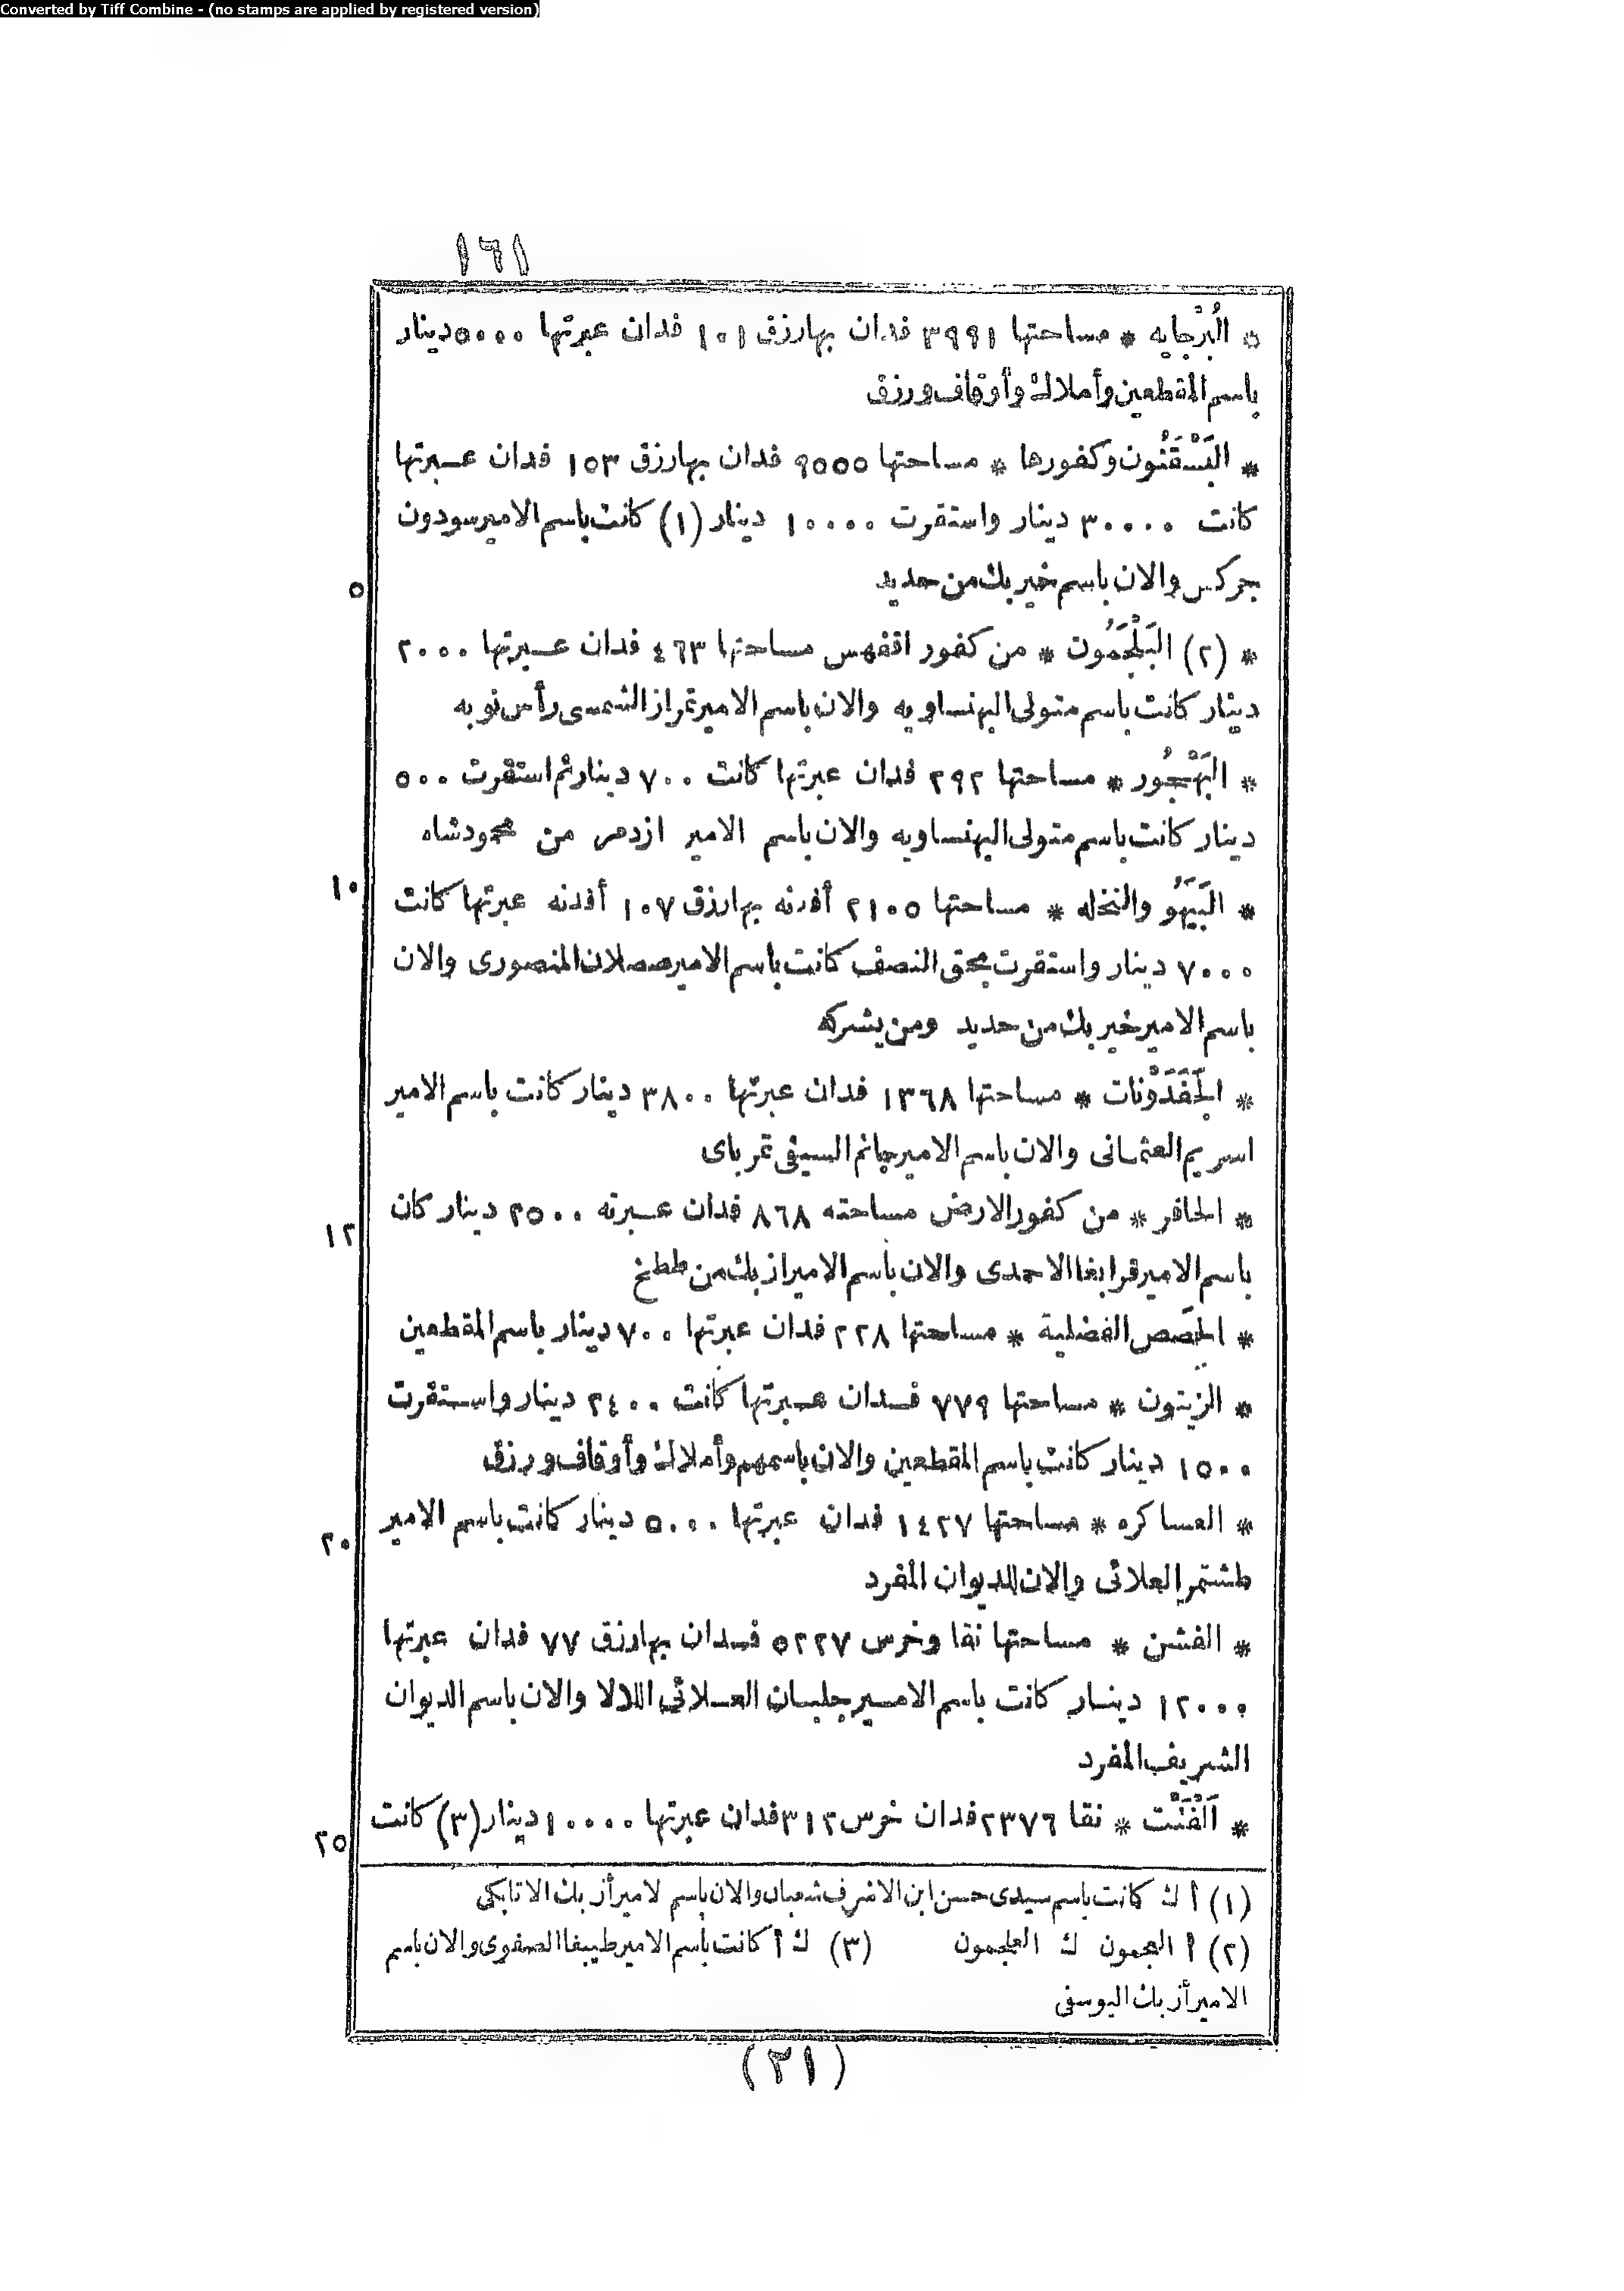 Converted by Tiff Combine - (no stamps are applied by registered version)
١٦١
* البُرْجايه * مساحتها ٣٩٩١ فدان بهارزق ١٠١ فدان عبرتها ٥٠٠٠ دينار
باسم المقطعين وأملاك وأوقاف ورزق
* البَسْقَنُون وكفورها * مساحتها ٩٥٥٥ فدان بهارزق ١٥٣ فدان عبرتها
كانت ٣٠٠٠٠ دينار واستقرت ١٠٠٠٠ دينار (١) كانت باسم الامير سودون
٥
جركس والان باسم خير بك من حديد
* (٢) البَلْجَمُون * من كفور اقفهس مساحتها ٤٦٣ فدان عبرتها ٢٠٠٠
دينار كانت باسم متولى البهنساويه والان باسم الامير تمراز الشمسى رأس نوبه
* البَهْجُور * مساحتها ٢٩٢ فدان عبرتها كانت ٧٠٠ دينار ثم استقرت ٥٠٠
دينار كانت باسم متولى البهنساويه والان باسم الامير ازدمر من محمودشاه
١٠
* البَيَهُو والنخله * مساحتها ٢١٠٥ أفدنه بهارزق ١٠٧ أفدنه عبرتها كانت
٧٠٠٠ دينار واستقرت بحق النصف كانت باسم الامير صصلان المنصورى والان
باسم الامير خير بك من حديد ومن يشركه
* الجَفَدَوْنات * مساحتها ١٣٦٨ فدان عبرتها ٣٨٠٠ دينار كانت باسم الامير
اسريم العثمانى والان باسم الامير جانم السيفى تمرباى
١٢
* الحافر * من كفور الارض مساحته ٨٦٨ فدان عبرته ٢٥٠٠ دينار كان
باسم الامير قرابغا الاحمدى والان باسم الامير ازبك من ططخ
* الحِصَص الفضلية * مساحتها ٢٢٨ فدان عبرتها ٧٠٠ دينار باسم المقطعين
* الزيتون * مساحتها ٧٧٩ فدان عبرتها كانت ٢٤٠٠ دينار واستقرت
١٥٠٠ دينار كانت باسم المقطعين والان باسمهم وأملاك وأوقاف ورزق
٢٠
* العساكره * مساحتها ١٤٢٧ فدان عبرتها ٥٠٠٠ دينار كانت باسم الامير
طشتمر العلائى والان للديوان المفرد
* الفشن * مساحتها نقا وخرس ٥٢٢٧ فدان بهارزق ٧٧ فدان عبرتها
١٢٠٠٠ دينار كانت باسم الامير جلبان العلائى اللالا والان باسم الديوان
الشريف المفرد
٢٥
* الفَنْت * نقا ٢٣٧٦ فدان خرس ٣١٢ فدان عبرتها ١٠٠٠٠ دينار (٣) كانت
(١) أ ك كانت باسم سيدى حسن ابن الاشرف شعبان والان باسم لامير أزبك الاتابكى
(٢) أ العجمون ك العلجمون (٣) ك أ كانت باسم الامير طيبغا الصفوى والان باسم
الامير أزبك اليوسفى
(٢١)